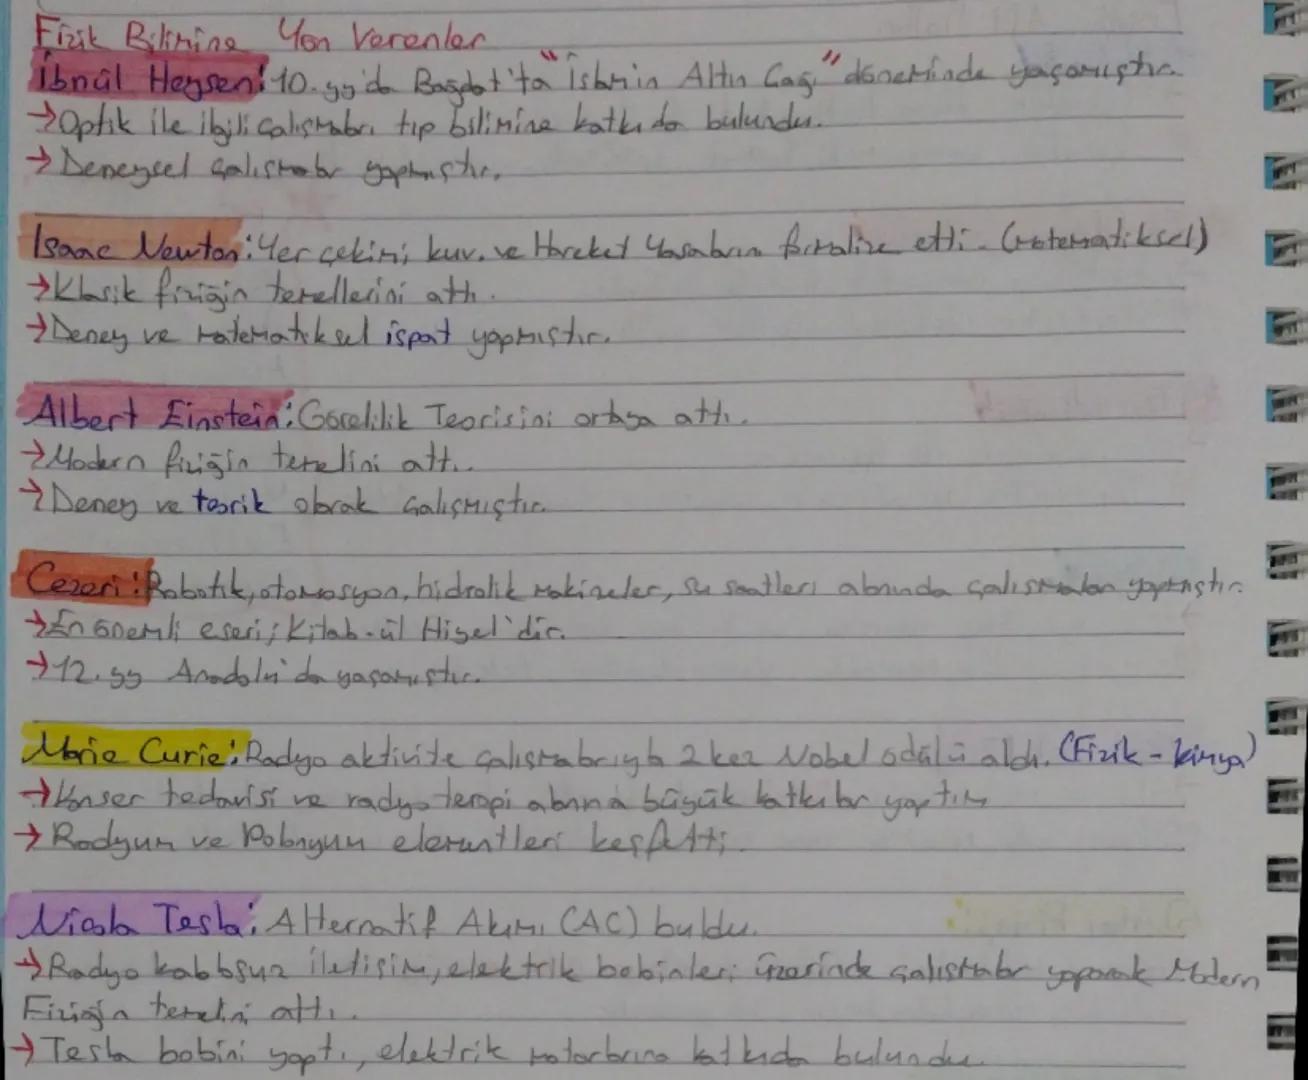 Fizik Bilimine Yön Verenler
İbnül Heysen: 10. yy'da Bağdat'ta "İslam'ın Altın Çağı" döneminde yaşamıştır.
→ Optik ile ilgili çalışmaları tıp bilimine katkıda bulundu.
→ Deneysel çalışmalar yapmıştır.
Isaac Newton: Yer çekimi, kuv. ve Hareket Yasaların formalize etti. (matematiksel)
→ Klasik fiziğin temellerini attı.
→ Deney ve matematiksel ispat yapmıştır.
Albert Einstein: Görelilik Teorisini ortaya attı.
→ Modern fiziğin temelini attı.
→ Deney ve teorik olarak çalışmıştır.
Cezeri: Robotik, otomasyon, hidrolik makineler, su saatleri alanında çalışmaları yapmıştır.
→ En önemli eseri; Kitab-ül Hiyel'dir.
→ 12. yy Anadolu'da yaşamıştır.
Marie Curie: Radyo aktivite çalışmalarıyla 2 kez Nobel ödülü aldı. (Fizik - kimya)
→ Kanser tedavisi ve radyo terapi alanına büyük katkılar yaptım
→ Radyum ve Polonyum elementleri keşfetti.
Nicola Tesla: Alternatif Akımı (AC) buldu.
→ Radyo kablosuz iletişim, elektrik bobinleri üzerinde çalışmalar yaparak Modern
Fiziğin temelini attı.
→ Tesla bobini yaptı, elektrik motorlarına katkıda bulundu.